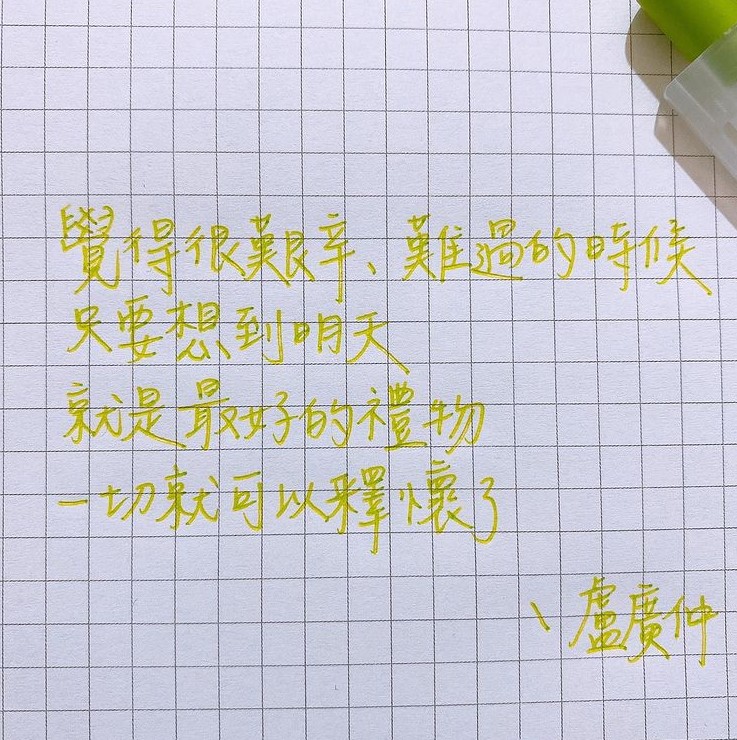 覺得很艱辛、難過的時候
只要想到明天
就是最好的禮物
一切就可以釋懷了
、盧廣仲